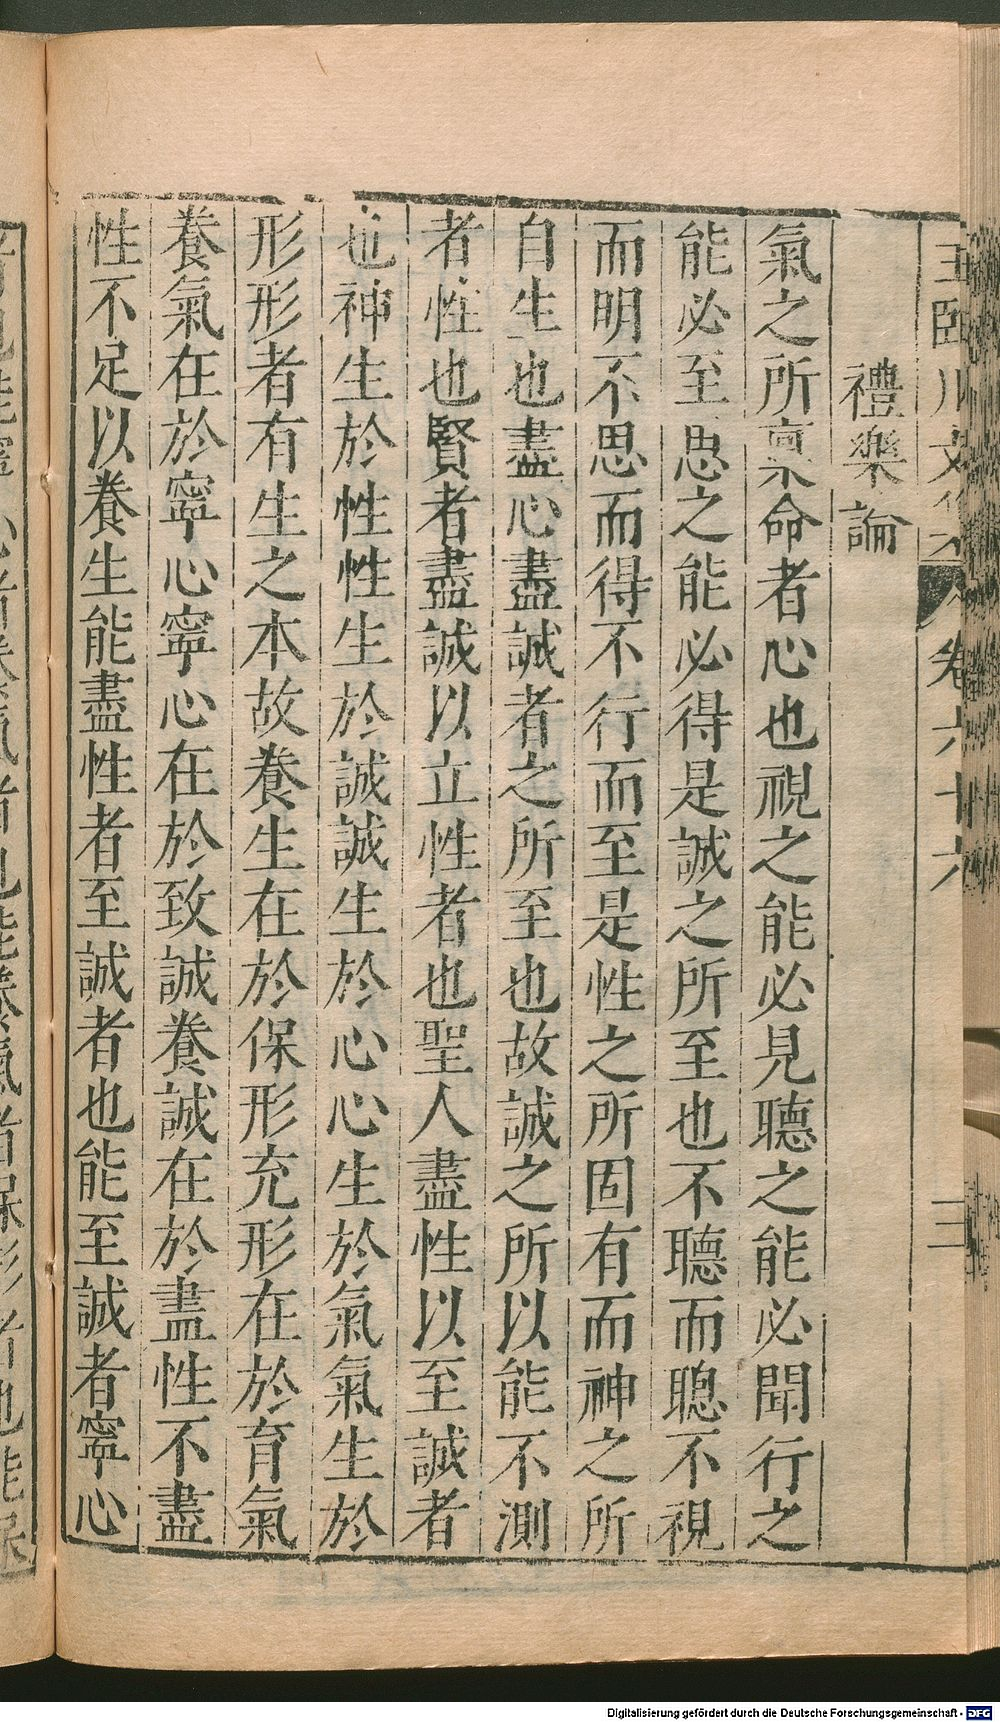 王臨川文集 卷六十六 三
禮樂論
氣之所禀命者心也視之能必見聽之能必聞行之
能必至思之能必得是誠之所至也不聽而聰不視
而明不思而得不行而至是性之所固有而神之所
自生也盡心盡誠者之所至也故誠之所以能不測
者性也賢者盡誠以立性者也聖人盡性以至誠者
也神生於性性生於誠誠生於心心生於氣氣生於
形形者有生之本故養生在於保形充形在於育氣
養氣在於寧心寧心在於致誠養誠在於盡性不盡
性不足以養生能盡性者至誠者也能至誠者寧心
Digitalisierung gefördert durch die Deutsche Forschungsgemeinschaft - DFG